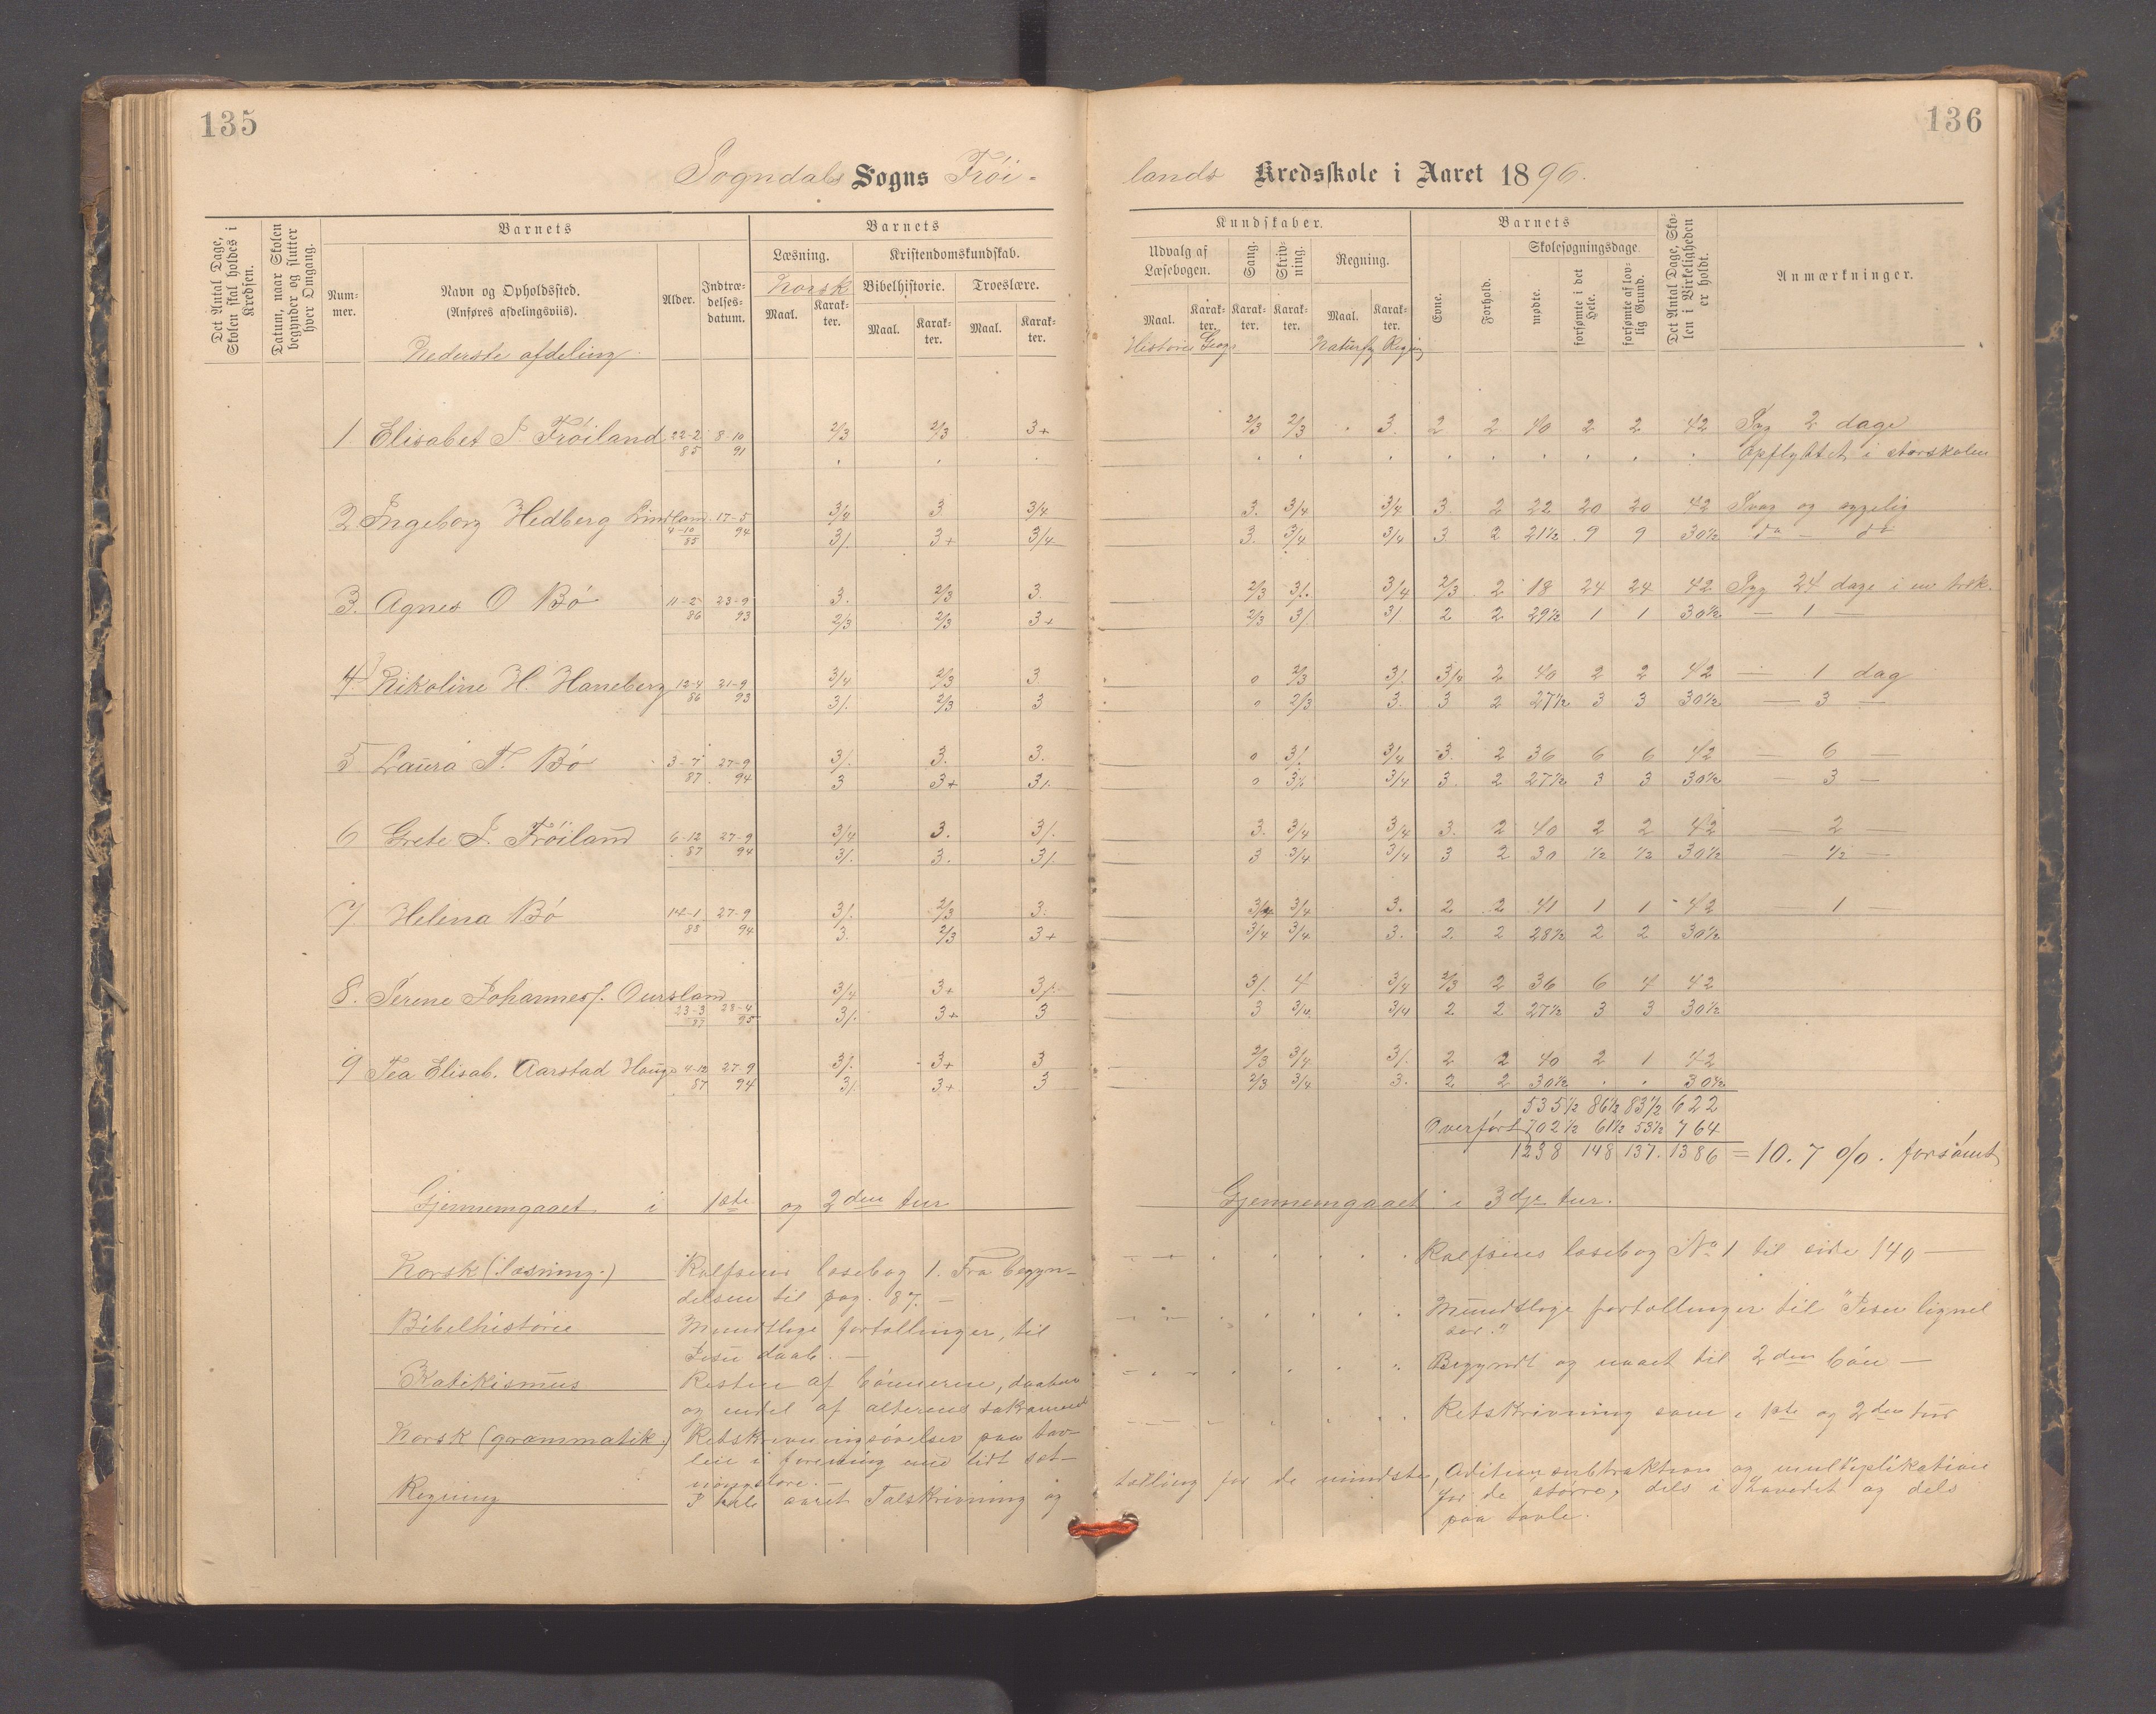 135
136
Sogndals Sogns Frøi-
lands Kredsskole i Aaret 1896.
Det Antal Dage, Skolen skal holdes i Kredsen.
Datum, naar Skolen begynder og slutter hver Omgang.
Barnets
Nummer.
Navn og Opholdssted.
(Anføres afdelingsviis).
Alder.
Indtrædelsesdatum.
Barnets
Læsning.
Norsk
Maal. Karakter.
Kristendomskundskab.
Bibelhistorie. Troeslære.
Maal. Karakter. Maal. Karakter.
Kundskaber.
Udvalg af Læsebogen.
Sang. Skrivning. Regning.
Maal. Karakter. Karakter. Karakter. Maal. Karakter.
Historie Geogr Naturfag Regning
Barnets
Evne. Forhold.
Skolesøgningsdage.
mødte. forsømte i det Hele. forsømte af lovlig Grund.
Det Antal Dage, Skolen i Virkeligheden er holdt.
Anmærkninger.
Nederste afdeling.
1 Elisabet J. Frøiland 22-2 8-10 2/3 2/3 3+ 2/3 2/3 3. 2 2 40 2 2 42 Syg 2 dage
85 91 Opflyttet i storskolen
2 Ingeborg Hedberg Lindland 17-5 3/4 3 3/4 3. 3/4 3/4 3. 2 22 20 20 42 Svag og sygelig
4-10 85 94 3/. 3+ 3/4 3. 3/4 3/4 3 2 21½ 9 9 30½ do - do
3. Agnes O Bø 11-2 23-9 3. 2/3 3. 2/3 3/. 3/4 2/3 2 18 24 24 42 Syg 24 dage i en træk.
86 93 2/3 2/3 3+ 2/3 3/. 3/. 2 2 29½ 1 1 30½ — 1 —
4. Nikoline H. Haneberg 12-4 21-9 3/4 2/3 3 0 2/3 3/. 3/4 2 40 2 2 42 — 1 dag
86 93 3/. 2/3 3 0 2/3 3. 3 2 27½ 3 3 30½ — 3 —
5 Laura T. Bø 3-7 27-9 3/. 3. 3. 0 3/. 3/4 3. 2 36 6 6 42 — 6 —
87 94 3 3+ 3/. 0 3/. 3/4 3. 2 27½ 3 3 30½ — 3 —
6 Grete J. Frøiland 6-12 27-9 3/4 3. 3/. 3. 3/4 3/4 3. 2 40 2 2 42 — 2 —
87 94 3/. 3. 3/. 3 3/4 3/4 3 2 30 ½ ½ 30½ — ½ —
7 Helena Bø 14-1 27-9 3/. 2/3 3. 3/4 3/4 3. 2 2 41 1 1 42 — 1 —
88 94 3. 2/3 3+ 3/4 3/4 3. 2 2 28½ 2 2 30½
8. Serene Johannesf. Oursland 3/4 3+ 3/. 3/. 4 3/4 2/3 2 36 6 4 42
23-3 87 28-4 95 3/. 3+ 3 3 3/4 3/4 2 2 27½ 3 3 30½
9 Tea Elisab. Aarstad Hauge 4-12 27-9 3/. 3+ 3 2/3 3/4 3/. 2 2 40 2 1 42
87 94 3/. 3+ 3 2/3 3/4 3. 2 2 30½ . . 30½
535½ 86½ 83½ 622
Overført 702½ 61½ 53½ 764
1238 148 137. 1386 = 10.7 %. forsømt
Gjennemgaaet i 1ste og 2den tur
Norsk (læsning.) Rolfsens læsebog 1. Fra begyn-
delsen til pag. 87. —
Bibelhistorie Mundtlige fortællinger, til
Jesu daab. —
Katikismus Resten af bønnerne, daaben
og endel af alterens sakrament
Norsk (grammatik.) Retskrivningsøvelser paa tav-
len i forening med lidt sæt-
ningslære. —
Regning I hele aaret Talskrivning og
Gjennemgaaet i 3dje tur.
Rolfsens læsebog No 1 til side 140 —
Mundtlige fortællinger til "Jesu lignel
ser."
Begyndt og naaet til 2den bøn —
Retskrivning som i 1ste og 2den tur
tælling for de mindste, Adition subtraktion og multiplikation
for de større, dels i hovedet og dels
paa tavle.